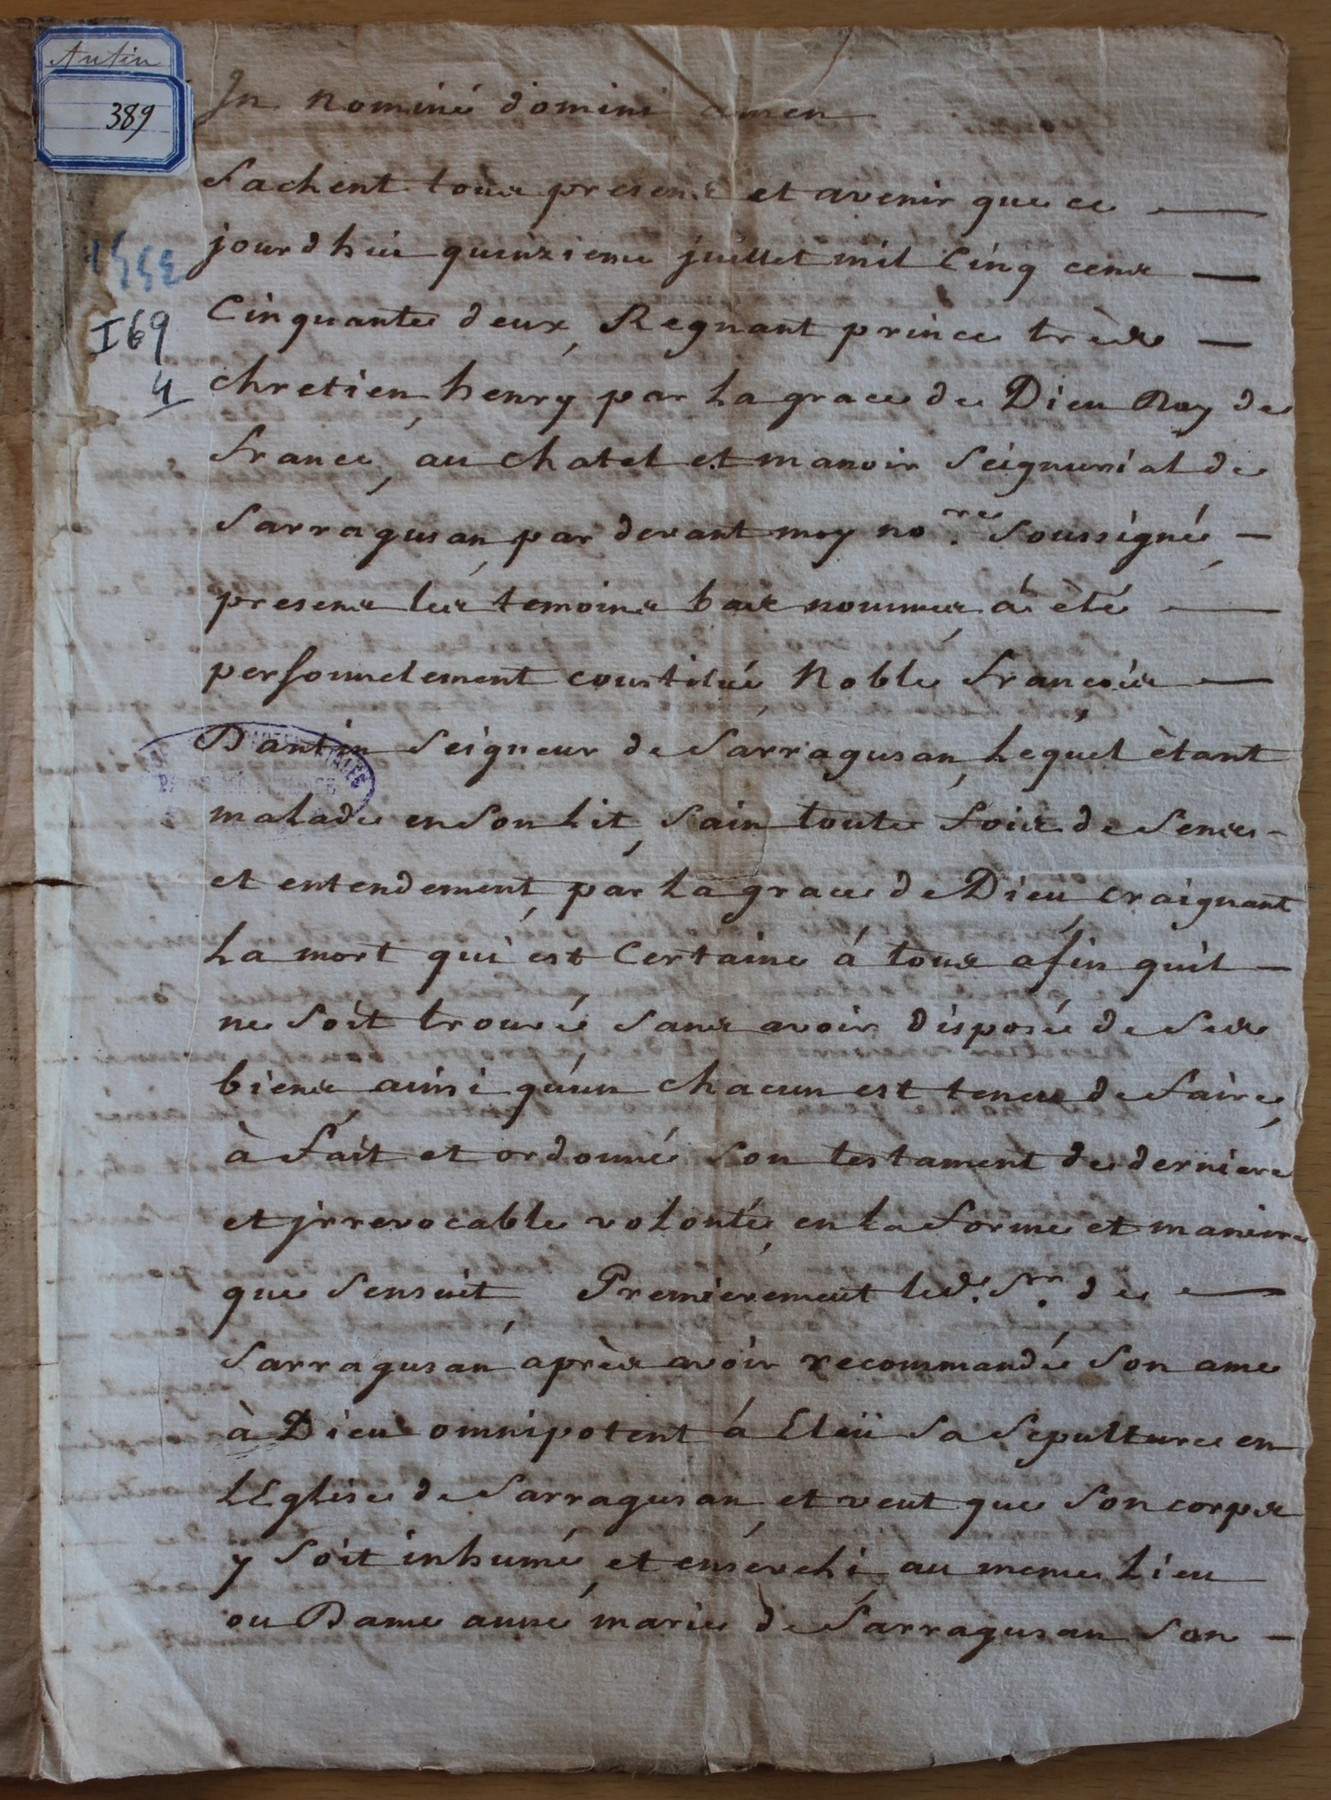 Antin
389
1552
I 69
4
In nominé domini amen
Sachent tous presens et avenir que ce
jourdhui quinzieme juillet mil Cinq cens
Cinquante deux, Regnant prince très
chretien, henry par la grace de Dieu Roy de
france, au chatel et manoir seigneurial de
Sarragusan, par devant moy no.re Soussigné,
presens les temoins bas nommes, á été
personnelement constitué, Noble françois
Dantin Seigneur de Sarragusan, Lequel ètant
malade en son Lit, Sain toute fois de Sens
et entendement, par la grace de Dieu, craignant
La mort qui est Certaine, á tous afin quil
ne soit trouvé sans avoir disposé de Ses
biens ainsi qu'un chacun est tenus de faire,
à fait et ordonné son testament de derniere
et jrrevocable volonté, en la forme et maniere
que sensuit, Premierement led. Sr. de
Sarragusan, après avoir recommandé Son ame
à Dieu omnipotent á Eleü sa sepulture en
LEglise de Sarragusan, et veut que Son corps
y soit inhumé, et enseveli, au meme Lieu
ou Dame anne, marie de Sarragusan Son